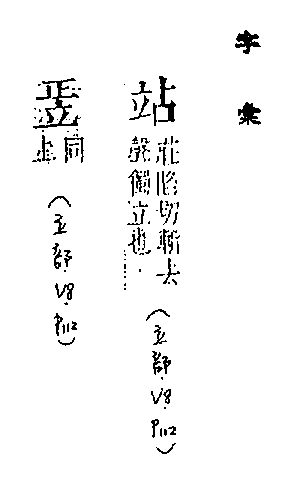 字彙
站
莊陷切斬去
聲獨立也
(立部.V8.P112)
同
上
(立部.V8.P112)